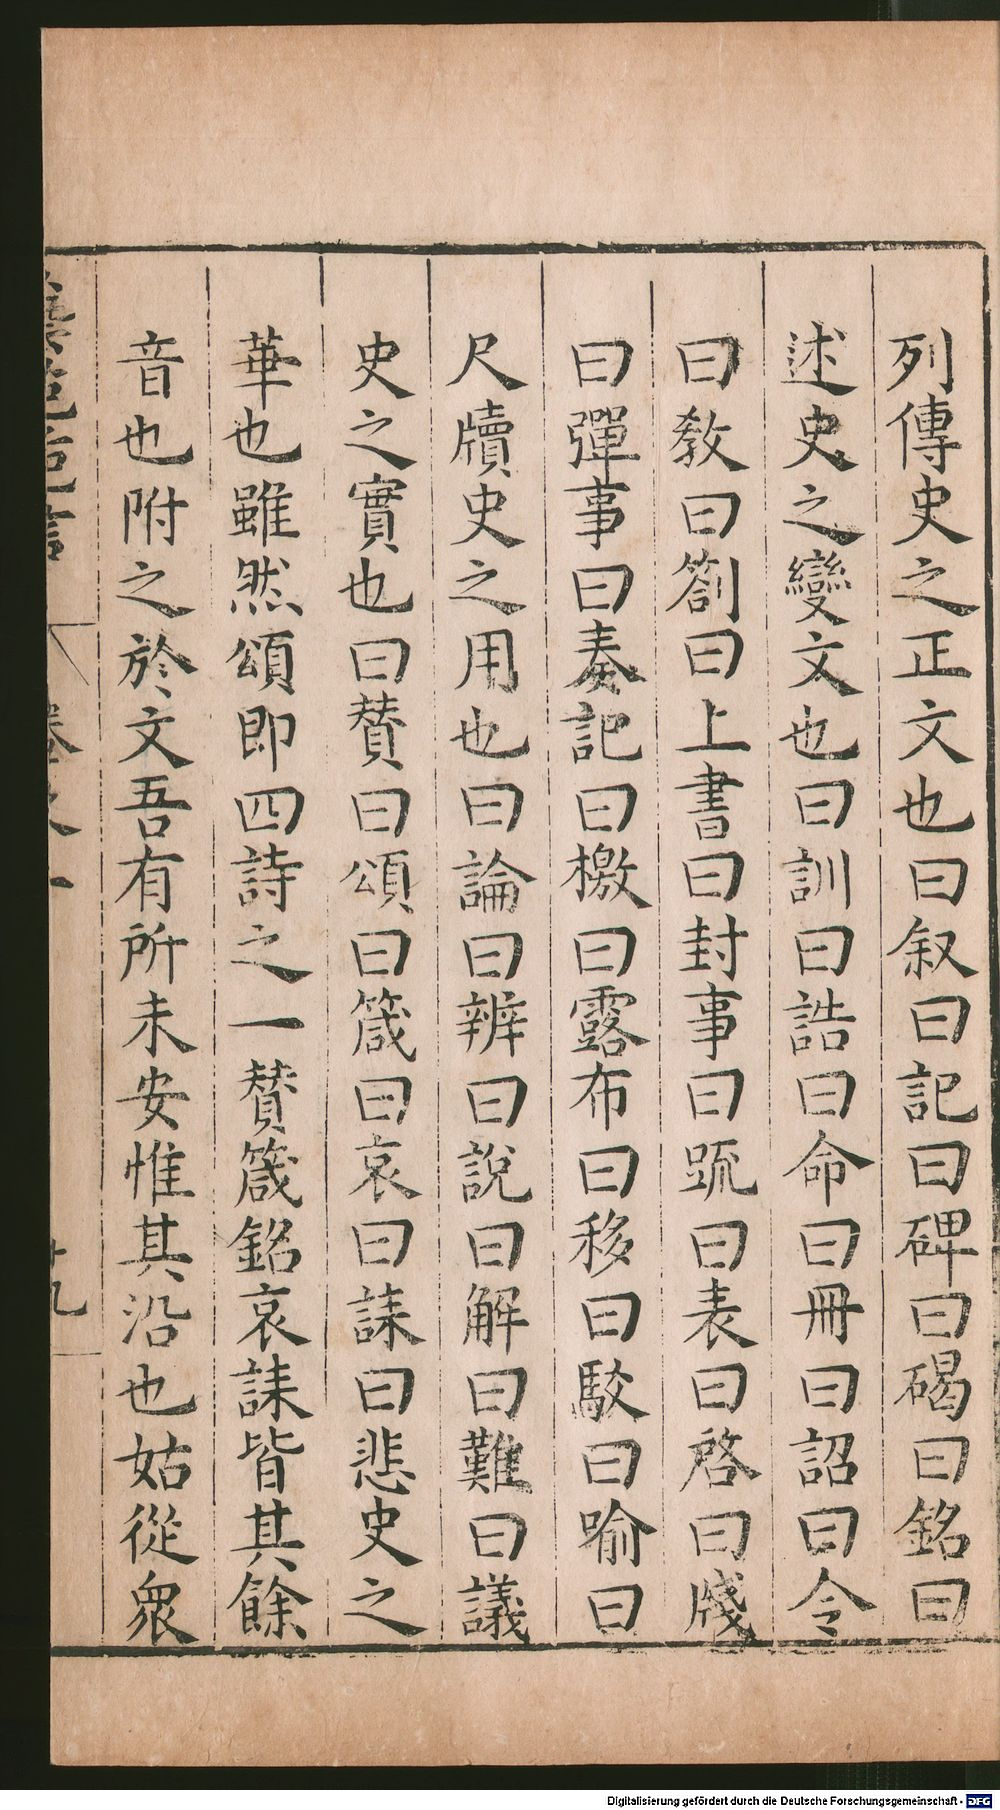 列傳史之正文也曰叙曰記曰碑曰碣曰銘曰
述史之變文也曰訓曰誥曰命曰冊曰詔曰令
曰教曰劄曰上書曰封事曰䟽曰表曰啓曰牋
曰彈事曰奏記曰檄曰露布曰移曰駮曰喻曰
尺牘史之用也曰論曰辨曰說曰解曰難曰議
史之實也曰賛曰頌曰箴曰哀曰誄曰悲史之
華也雖然頌即四詩之一賛箴銘哀誄皆其餘
音也附之於文吾有所未安惟其沿也姑從衆
卷之一
十九
Digitalisierung gefördert durch die Deutsche Forschungsgemeinschaft - DFG